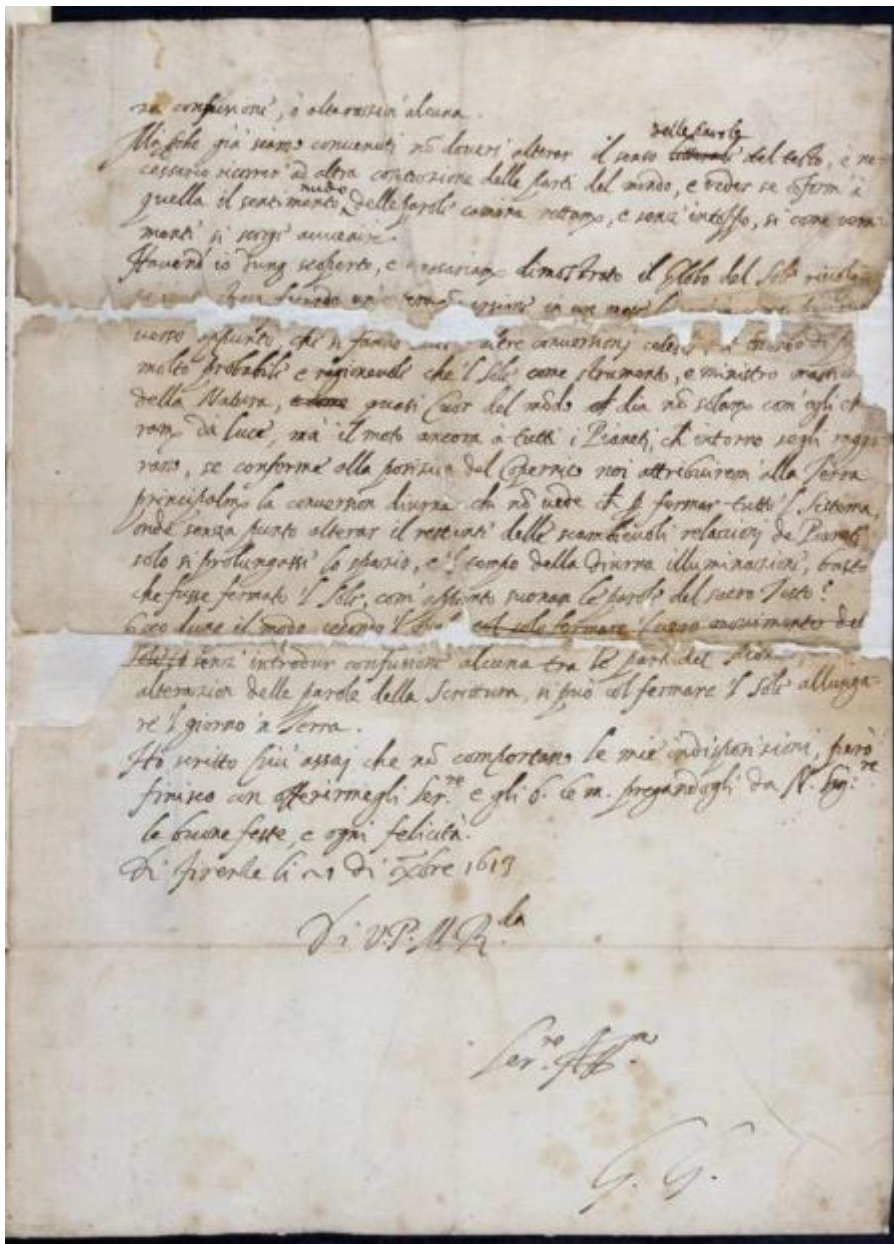 ne confusione, o alterassion alcuna.
delle parole
Mà perche già siamo convenuti nõ doversi alterar il senso litterale del testo, è ne
cessario ricorrer' ad altra costituzione delle parti del mondo, e veder se conform' à
nudo
quella il sentimento delle parole camina rettamẽ, e senz' intoppo, si come vera
mente si scorge avvenire.
Havend' io dunq scoperto, e necessariamẽ dimostrato il Globo del Sole rivolg
in se stesso facendo un' intera conversione in un mese
verso appunto, che si fanno altre conversionj celes
molto probabile e ragionevole che 'l Sole come strumento, e ministro massimo
della Natura, e come quasi Cuor del mõdo dia nõ solamẽ com' egli chi
ramẽ da luce, mà il moto ancora à tutti i Pianeti, ch' intorno segli raggi
rano, se conforme alla posizion del Copernico noi attribuirem' alla Terra
principalmẽ la conversion diurna chi nõ vede ch̃ ꝑ fermar tutto 'l Sistema,
onde senza punto alterar il restante delle scambievoli relazionj de Pianeti
solo si prolungasse lo spazio, e 'l tempo della diurna illuminazione, basta
che fusse fermato 'l Sole, com' appunto suonan le parole del sacro Testo?
Ecco dunq il modo secondo 'l quale col solo fermare l' moviment del
Sole senz' introdur confusione alcuna tra le parti del
alterazion delle parole della Scrittura, si può col fermare 'l Sole allunga-
re 'l giorno 'n Terra.
Hò scritto più assaj che nõ comportano le mie indisposizioni, però
finisco con offerirmegli Ser.re e gli b. le m. pregandogli da N. Sig.re
le buone feste, e ogni felicità.
Di firenze li 21 di Xbre 1613
Di V.P.M.R.da
Ser.re Aff.mo
G. G.